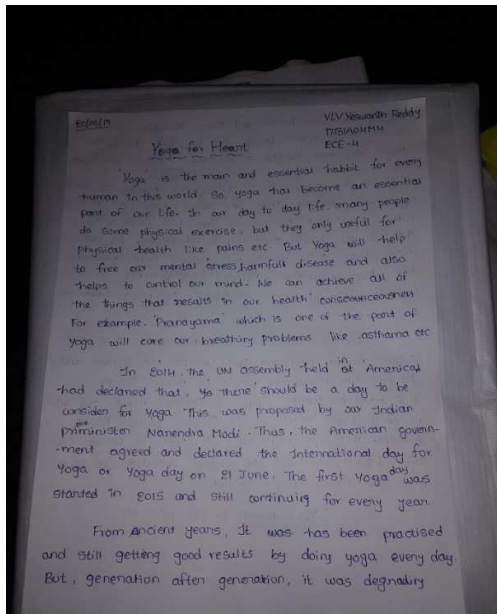 VLV Yeswanth Reddy
ECE-4
Yoga for Heart
'Yoga' is the main and essential habbit for every
human in this world. So, yoga has become an essential
part of our life. In our day to day life many people
do some physical exercise. but they only useful for
physical health like pains etc. But Yoga will help
to free our mental stress, harmfull disease and also
helps to control our mind. We can achieve all of
the things that results in our health
For example. 'Pranayama' which is one of the part of
Yoga will care our breathing problems like asthama etc
In 2014, the UN assembly held in America
had declared that, there should be a day to be
consider for Yoga. This was proposed by our Indian
priminister Narendra Modi. Thus, the American govern-
-ment agreed and declared the International day for
Yoga or Yoga day on 21 June. The first Yoga day was
started in 2015 and still continuing for every year
From ancient years, It was has been practised
and still getting good results by doing yoga every day.
But, generation after generation, it was degrading